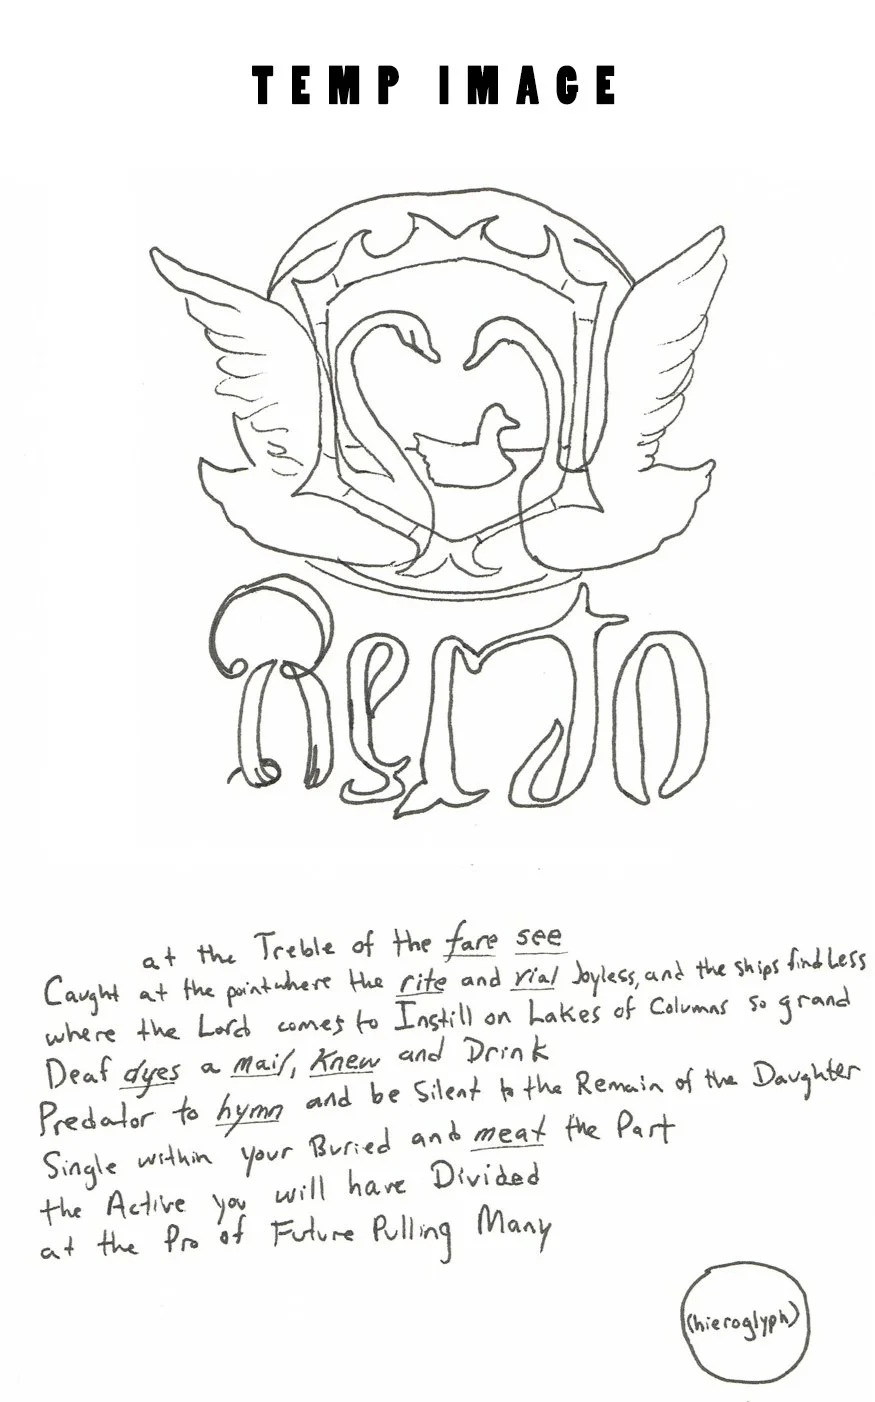 TEMP IMAGE
Rerto
at the Treble of the fare see
Caught at the point where the rite and rial Joyless, and the ships find Less
where the Lord comes to Instill on Lakes of Columns so grand
Deaf dyes a mail, Knew and Drink
Predator to hymn and be Silent to the Remain of the Daughter
Single within your Buried and meat the Part
the Active you will have Divided
at the Pro of Future Pulling Many
(hieroglyph)